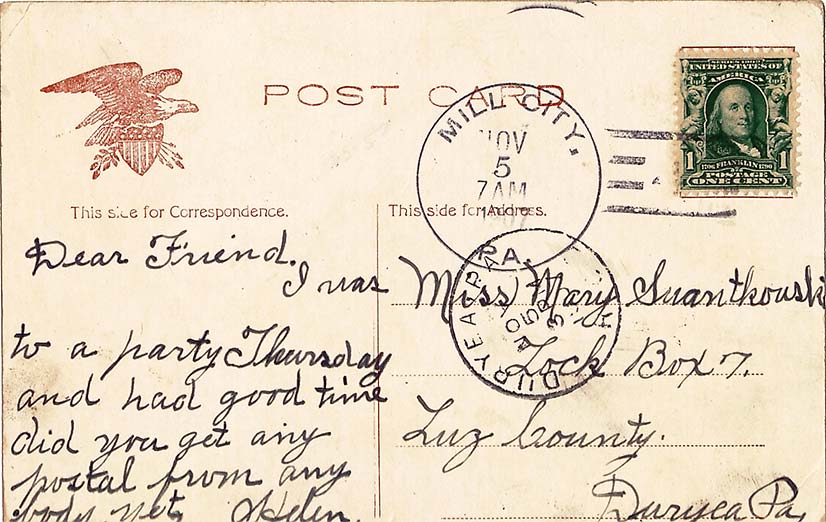 POST CARD
MILL CITY,
NOV
5
7AM
1907
PA.
SERIES 1902
UNITED STATES OF
AMERICA
1 1706 FRANKLIN 1790 1
POSTAGE
ONE CENT
This side for Correspondence.
This side for Address.
DURYEA PA.
NOV
5
3
Dear Friend.
I was
to a party Thursday
and had good time
did you get any
postal from any
body yet, Helen.
Miss Mary Suantkouski
Lock Box 7.
Luz County.
Duryea Pa,